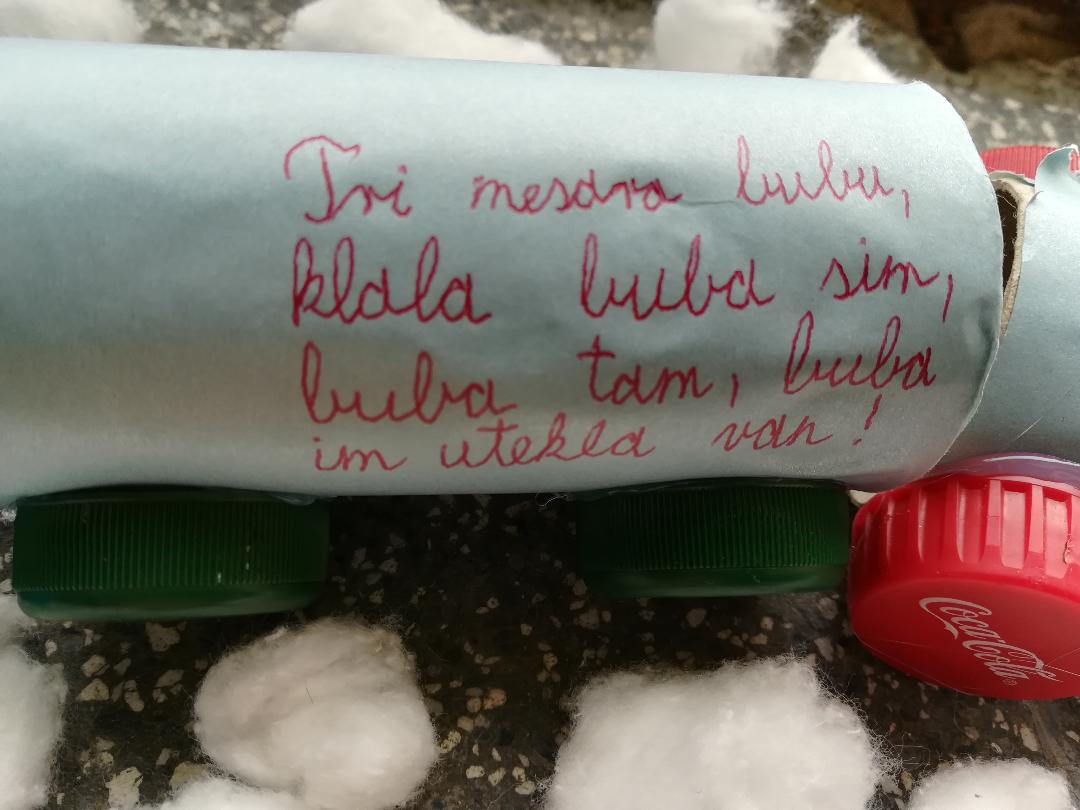 Tri mesara bubu,
klala buba sim,
buba tam, buba
im utekla van!
Coca-Cola